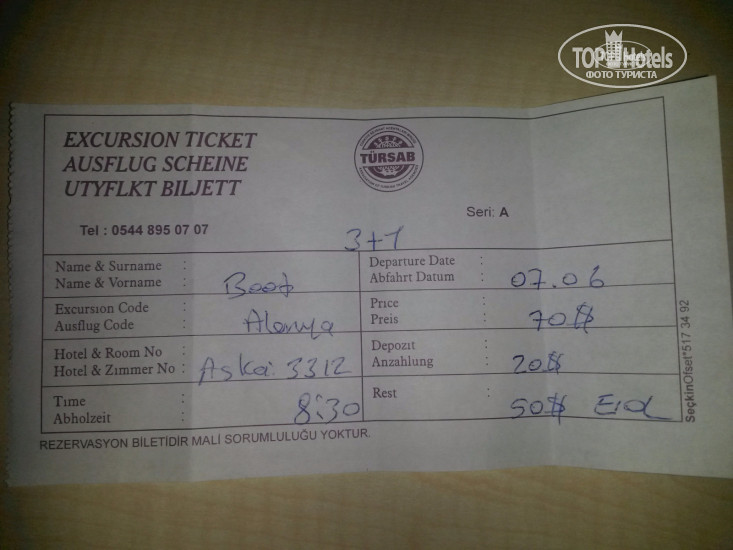 TOP Hotels
ФОТО ТУРИСТА
EXCURSION TICKET
AUSFLUG SCHEINE
UTYFLKT BILJETT
TÜRSAB
Seri: A
Tel : 0544 895 07 07
3+1
Name & Surname :
Name & Vorname :
Departure Date :
Abfahrt Datum :
07.06
Excursıon Code :
Ausflug Code :
Alanya
Prıce :
Preis :
70$
Hotel & Room No :
Hotel & Zımmer No :
Aska: 3312
Depozıt :
Anzahlung :
20$
Tıme :
Abholzeit :
8:30
Rest :
50$
REZERVASYON BİLETİDİR MALİ SORUMLULUĞU YOKTUR.
SeçkinOfset*517 34 92